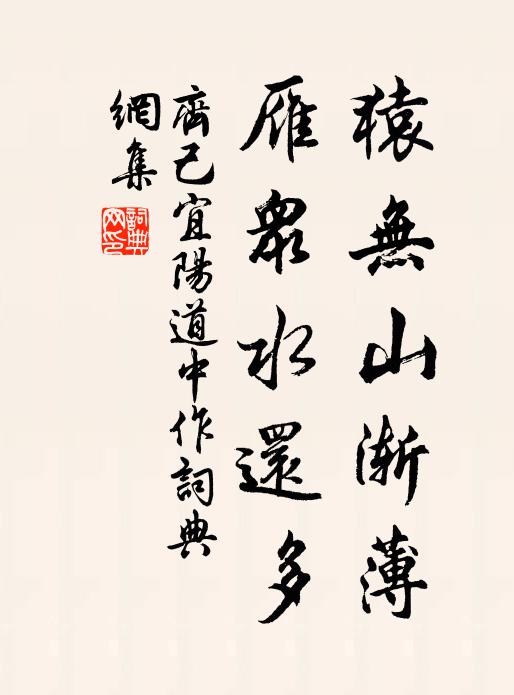 猿無山漸薄
雁眾水還多
齊己宜陽道中作詞典
網集
詞典網印